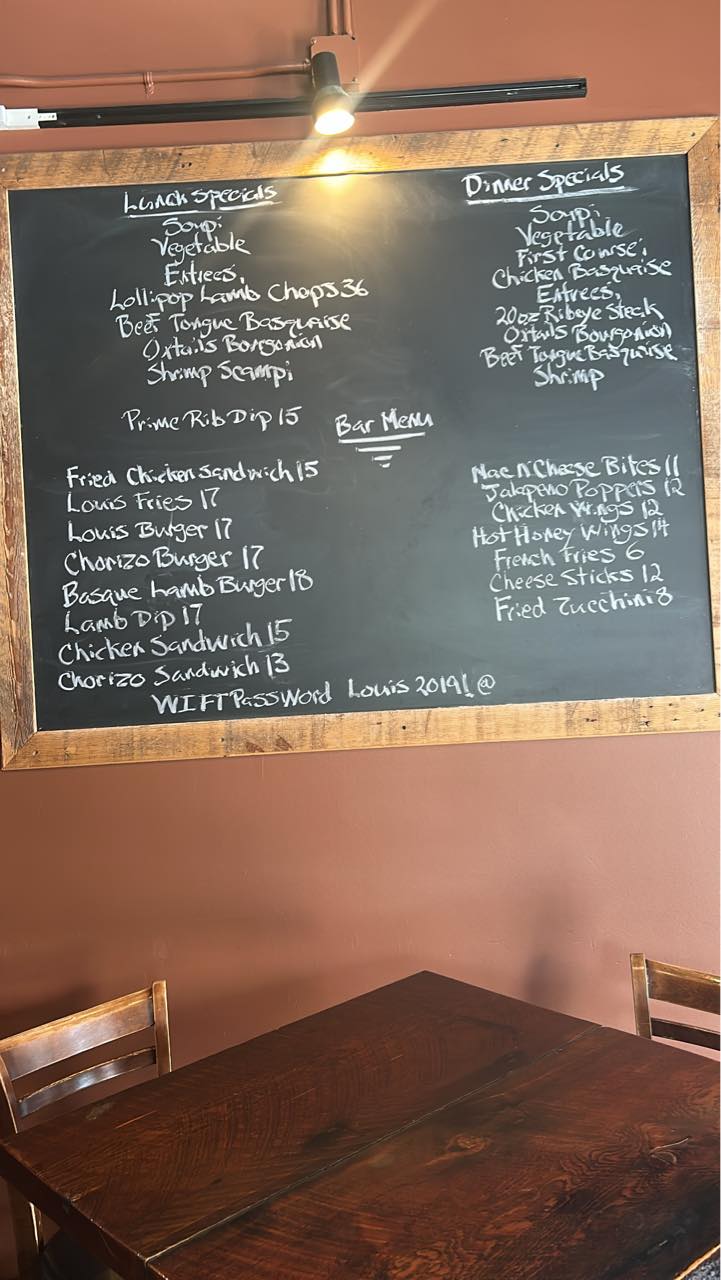 Lunch Specials
Soup:
Vegetable
Entrees,
Lollipop Lamb Chops 36
Beef Tongue Basquaise
Oxtails Bourgonion
Shrimp Scampi
Prime Rib Dip 15
Dinner Specials
Soup:
Vegetable
First Course;
Chicken Basquaise
Entrees,
20oz Ribeye Steak
Oxtails Bourgonion
Beef Tongue Basquaise
Shrimp
Bar Menu
Fried Chicken Sandwich 15
Louis Fries 17
Louis Burger 17
Chorizo Burger 17
Basque Lamb Burger 18
Lamb Dip 17
Chicken Sandwich 15
Chorizo Sandwich 13
Mac N'Cheese Bites 11
Jalapeno Poppers 12
Chicken Wings 12
Hot Honey Wings 14
French Fries 6
Cheese Sticks 12
Fried Zucchini 8
WIFI PassWord Louis 2019!@